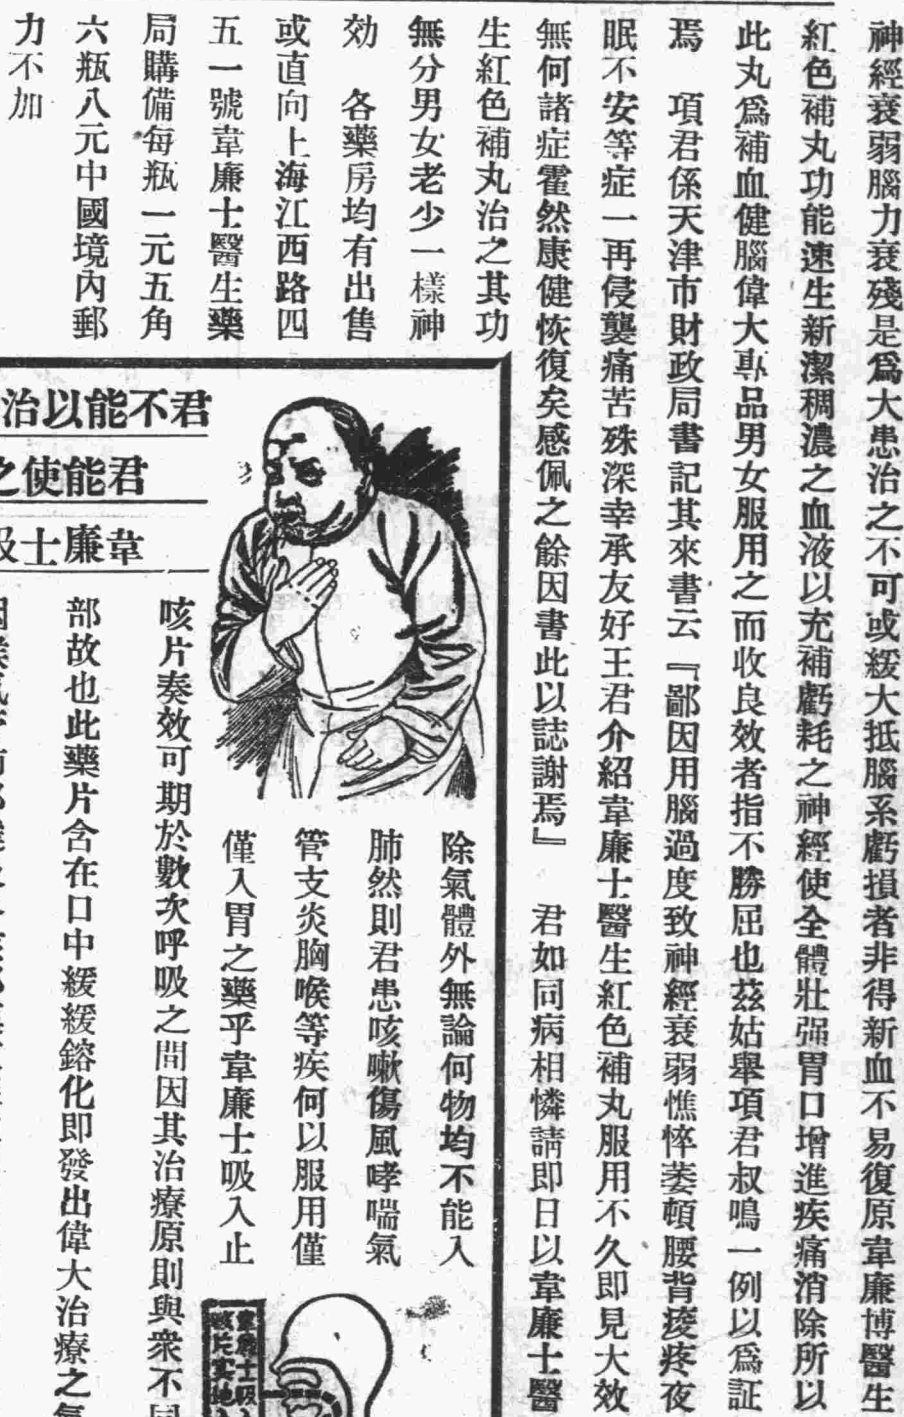 神經衰弱腦力衰殘是爲大患治之不可或緩大抵腦系虧損者非得新血不易復原韋廉博醫生
紅色補丸功能速生新潔稠濃之血液以充補虧耗之神經使全體壯强胃口增進疾痛消除所以
此丸爲補血健腦偉大專品男女服用之而收良效者指不勝屈也茲姑舉項君叔鳴一例以爲証
焉　項君係天津市財政局書記其來書云『鄙因用腦過度致神經衰弱憔悴萎頓腰背痠疼夜
眠不安等症一再侵襲痛苦殊深幸承友好王君介紹韋廉士醫生紅色補丸服用不久即見大效
無何諸症霍然康健恢復矣感佩之餘因書此以誌謝焉』　君如同病相憐請即日以韋廉士醫
生紅色補丸治之其功
無分男女老少一樣神
効　各藥房均有出售
或直向上海江西路四
五一號韋廉士醫生藥
局購備每瓶一元五角
六瓶八元中國境內郵
力不加
君不能以治
君能使之
韋廉士吸
除氣體外無論何物均不能入
肺然則君患咳嗽傷風哮喘氣
管支炎胸喉等疾何以服用僅
僅入胃之藥乎韋廉士吸入止
咳片奏效可期於數次呼吸之間因其治療原則與衆不同
部故也此藥片含在口中緩緩鎔化即發出偉大治療之氣
韋廉士吸入